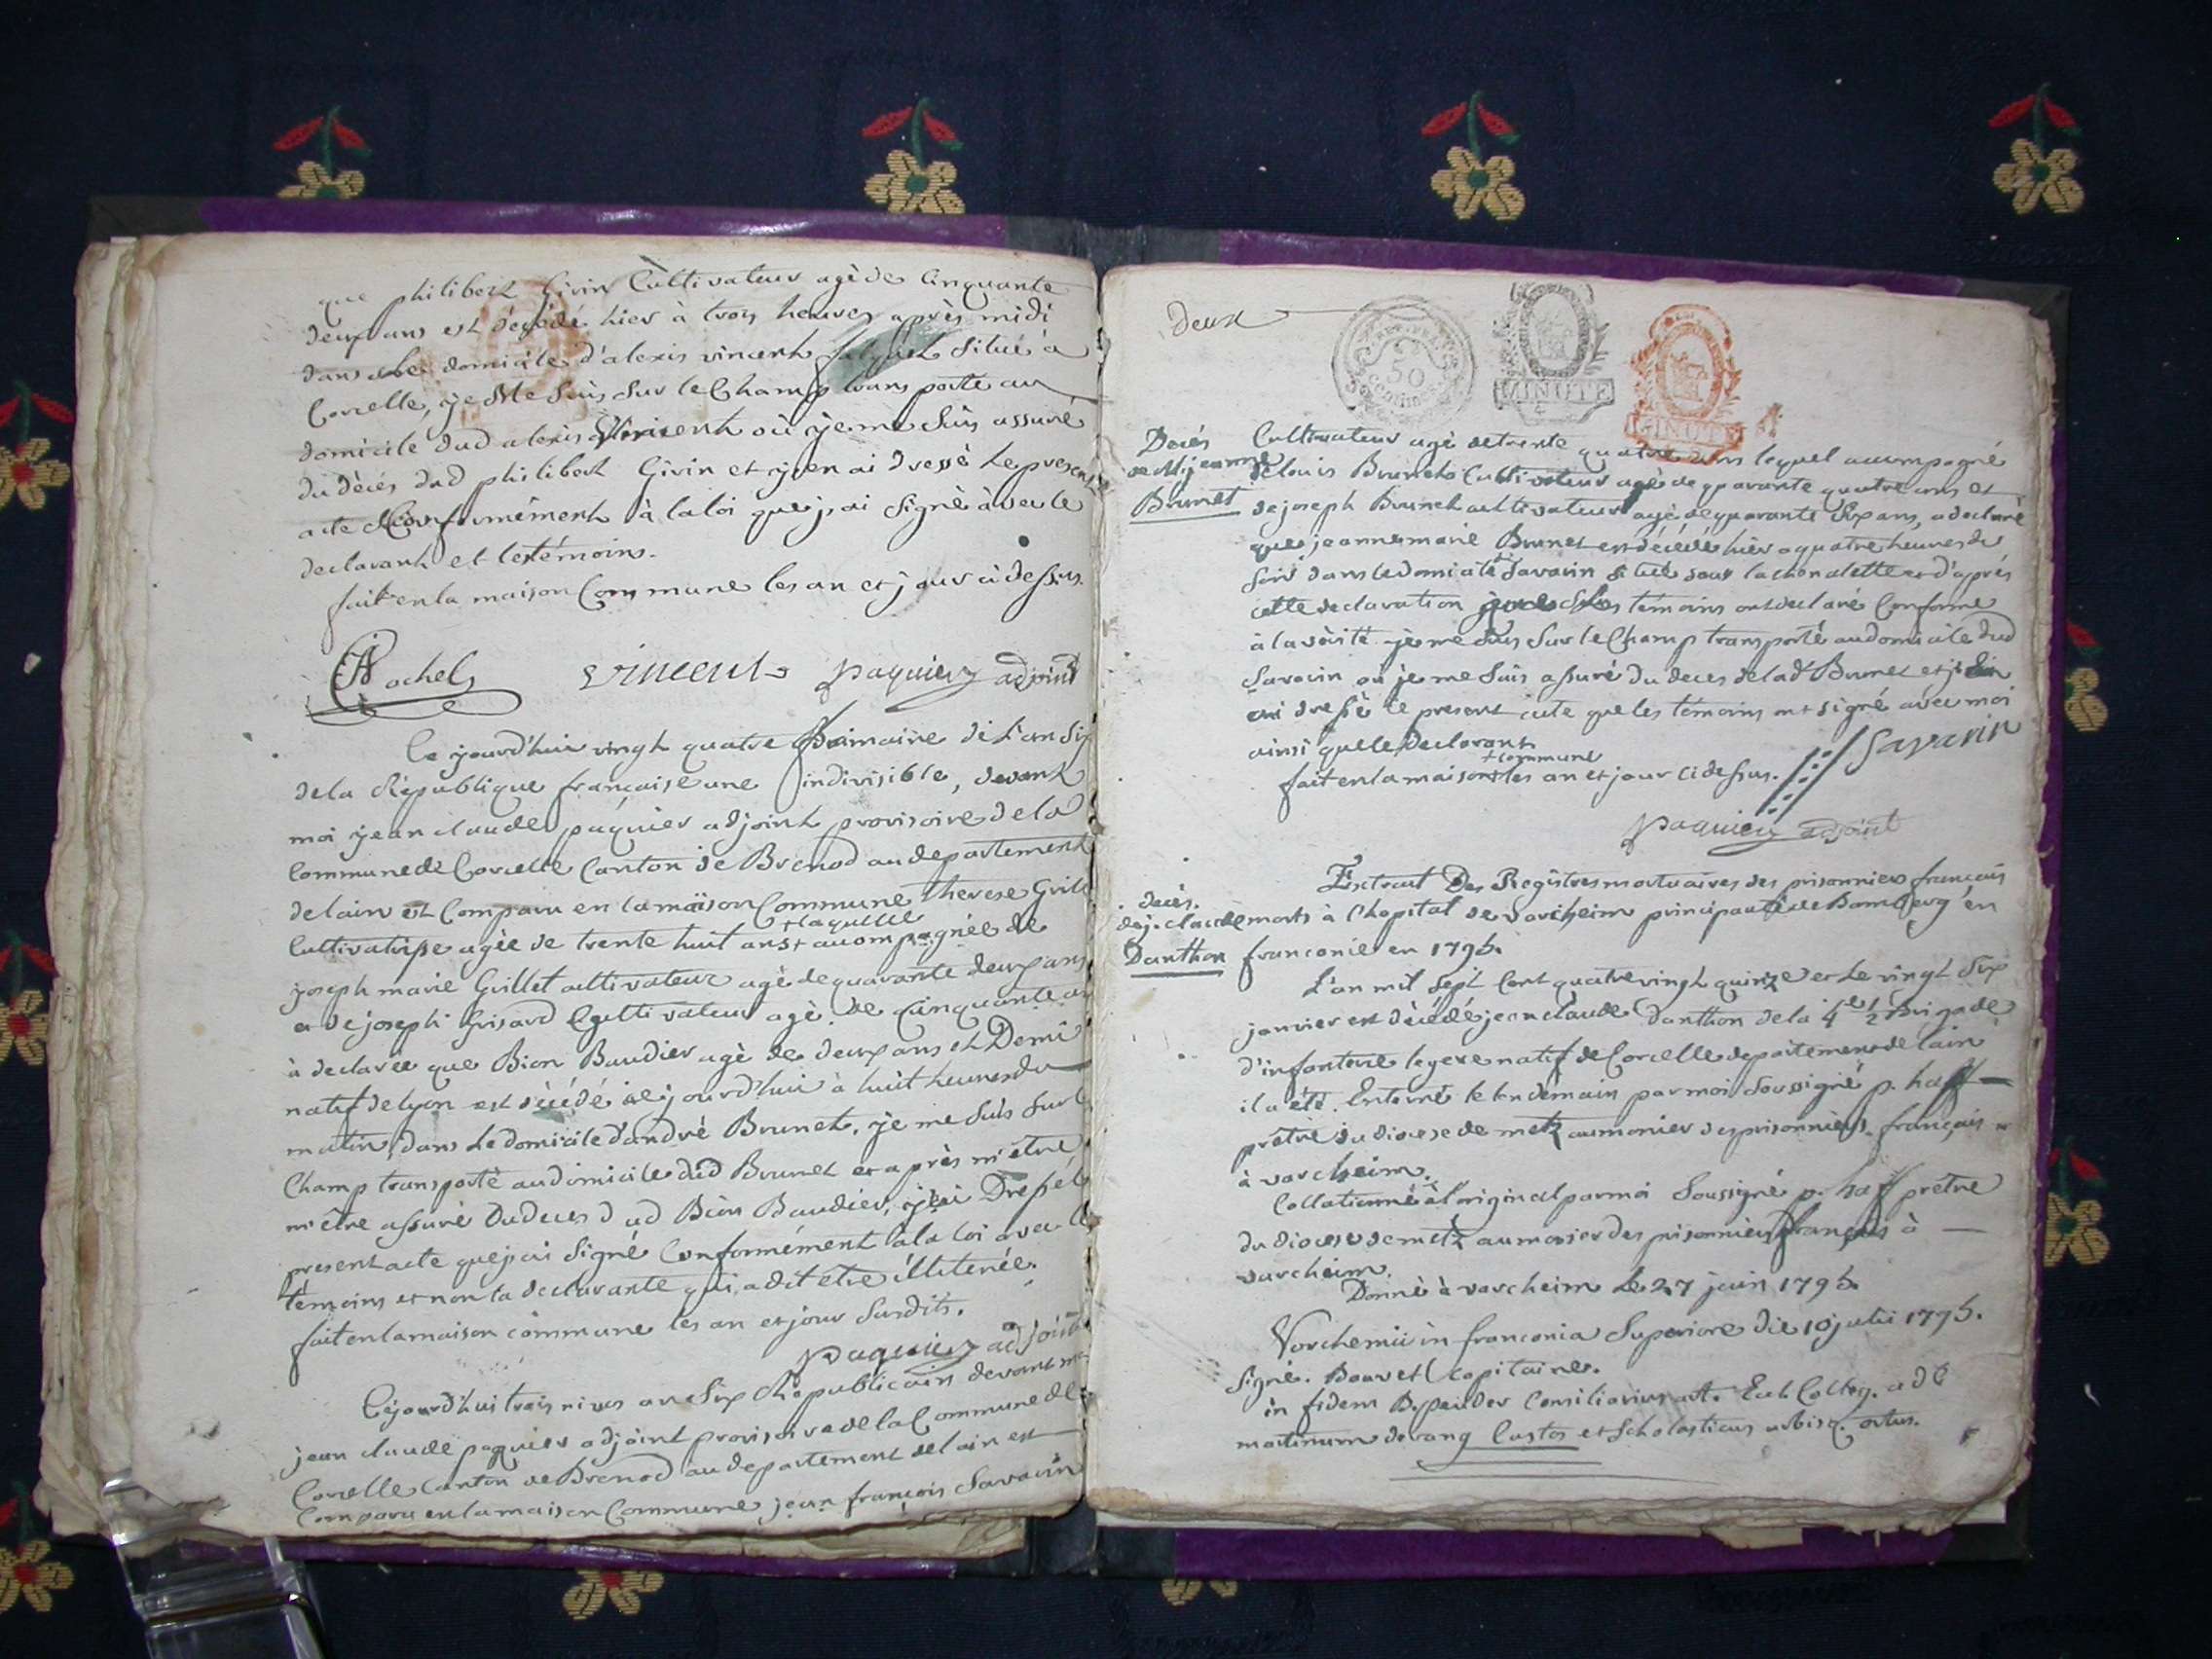 que philibert Givin Cultivateur agè de Cinquante
deux ans est décédé hier à trois heures après midi
dans le domicile d'alexis vincent situé à
Corcelle, je me suis sur le Champ transporté au
domicile dud alexis Vincent où je me suis assuré
du décés dud philibert Givin et j'en ai dressé le present
acte Conformément à la loi que j'ai signé avec le
declarant et les témoins.
fait en la maison Commune les an et jour ci dessus.
Rochel vincent paquier adjoint
Ce jourd'hui vingt quatre frimaire de l'an six
de la République française une indivisible, devant
moi jean claude paquier adjoint provisoire de la
Commune de Corcelle Canton de Brenod au departement
de lain est Comparu en la maison Commune therese Grill
+ laquelle
Cultivatrisse agée de trente huit ans + accompagnée de
joseph marie Grillet cultivateur agé de quarante deux ans
et de joseph Grisard Cultivateur agé de cinquante an
à declarée que Bion Baudier agé de deux ans et Demi
natif de lyon est décédé ce jourd'hui à huit heures du
matin, dans le domicile d'andré Brunet. je me suis sur le
Champ transporté au domicile dud Brunet et après m'etre
m'être assuré du deces dud Bion Baudier, j'ai Dressé le
present acte que j'ai signé Conformément à la loi avec le
témoins et non la declarante qui a dit etre illiterée.
fait en la maison commune les an et jour susdits.
paquier adjoint
Cejourd'hui trois nivos an six Républicain devant moi
jean claude paquier adjoint provisoire de la Commune de
Corcelle Canton de Brenod au departement de lain est
Comparu en la maison Commune jean françois Savarin
deux
50
MINUTE
4
MINUTE
Decés
de M jeanne
Brunet
Cultivateur agé de trente quatre ans lequel accompagné
de louis Brunet Cultivateur agé de quarante quatre ans et
de joseph Brunet cultivateur agé de quarante six ans, a declaré
que jeanne marie Brunet est décédée hier a quatre heures du
soir dans le domicile Savarin situé sous la chandelette et d'après
cette declaration que les témoins ont declaré Conforme
à la vérité je me suis sur le Champ transporté au domicile dud
Savarin où je me suis assuré du deces de lad Brunet et j'en
ai dressé le present acte que les témoins ont signé avec moi
ainsi que le Declarant
+ commune
fait en la maison + les an et jour ci dessus.
Savarin
paquier adjoint
decés.
de j. claude
Danthon
Extrait Des Registres mortuaires des prisonniers français
morts à l'hopital de varcheim principauté de Bamberg en
franconie en 1795.
L'an mil sept Cent quatre vingt quinze et le vingt six
janvier est décédé jean claude Danthon de la 4e 1/2 Brigade
d'infanterie legere natif de Corcelle departement de lain
il a été Enterré le lendemain par moi soussigné p. haff
prêtre du diocese de metz aumonier des prisonniers français
à varcheim.
Collationné à l'original par moi Soussigné p. haff prêtre
du diocese de metz aumonier des prisonniers français à
varcheim.
Donné à varcheim le 27 juin 1795.
Vorchemii in franconia Superiore die 10 julii 1795.
Signé. Bouvet Capitaine.
in fidem B. peuder Consiliarius Eccl. Colleg. ad
martinum decang Custos et Scholasticus urbis